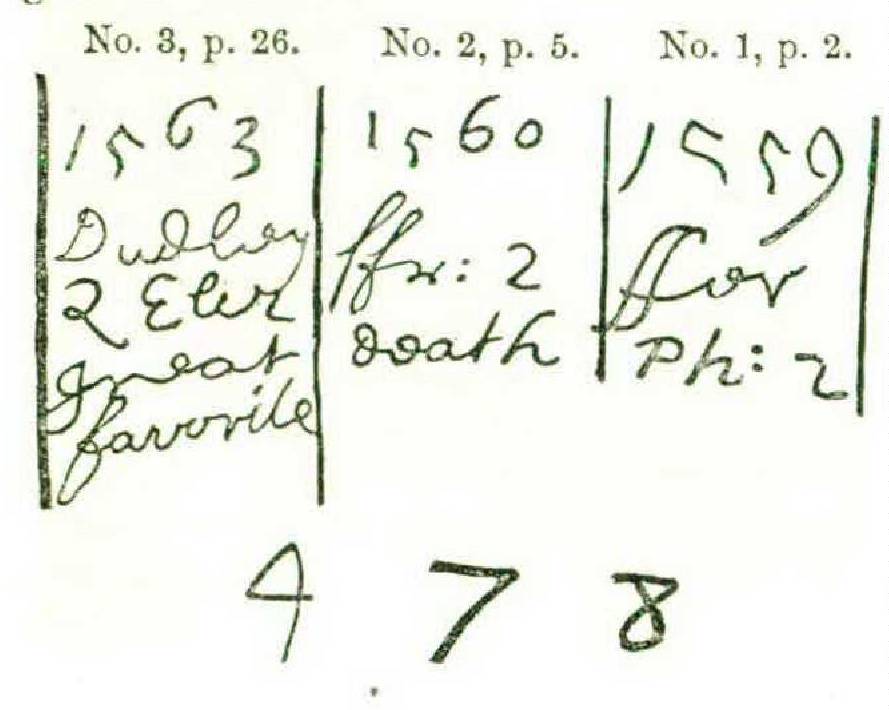 No. 3, p. 26.
1563
Dudley
Q Eliz
great
favorite
No. 2, p. 5.
1560
ffr: 2
death
No. 1, p. 2.
1559
ffor
Ph: 2
4 7 8